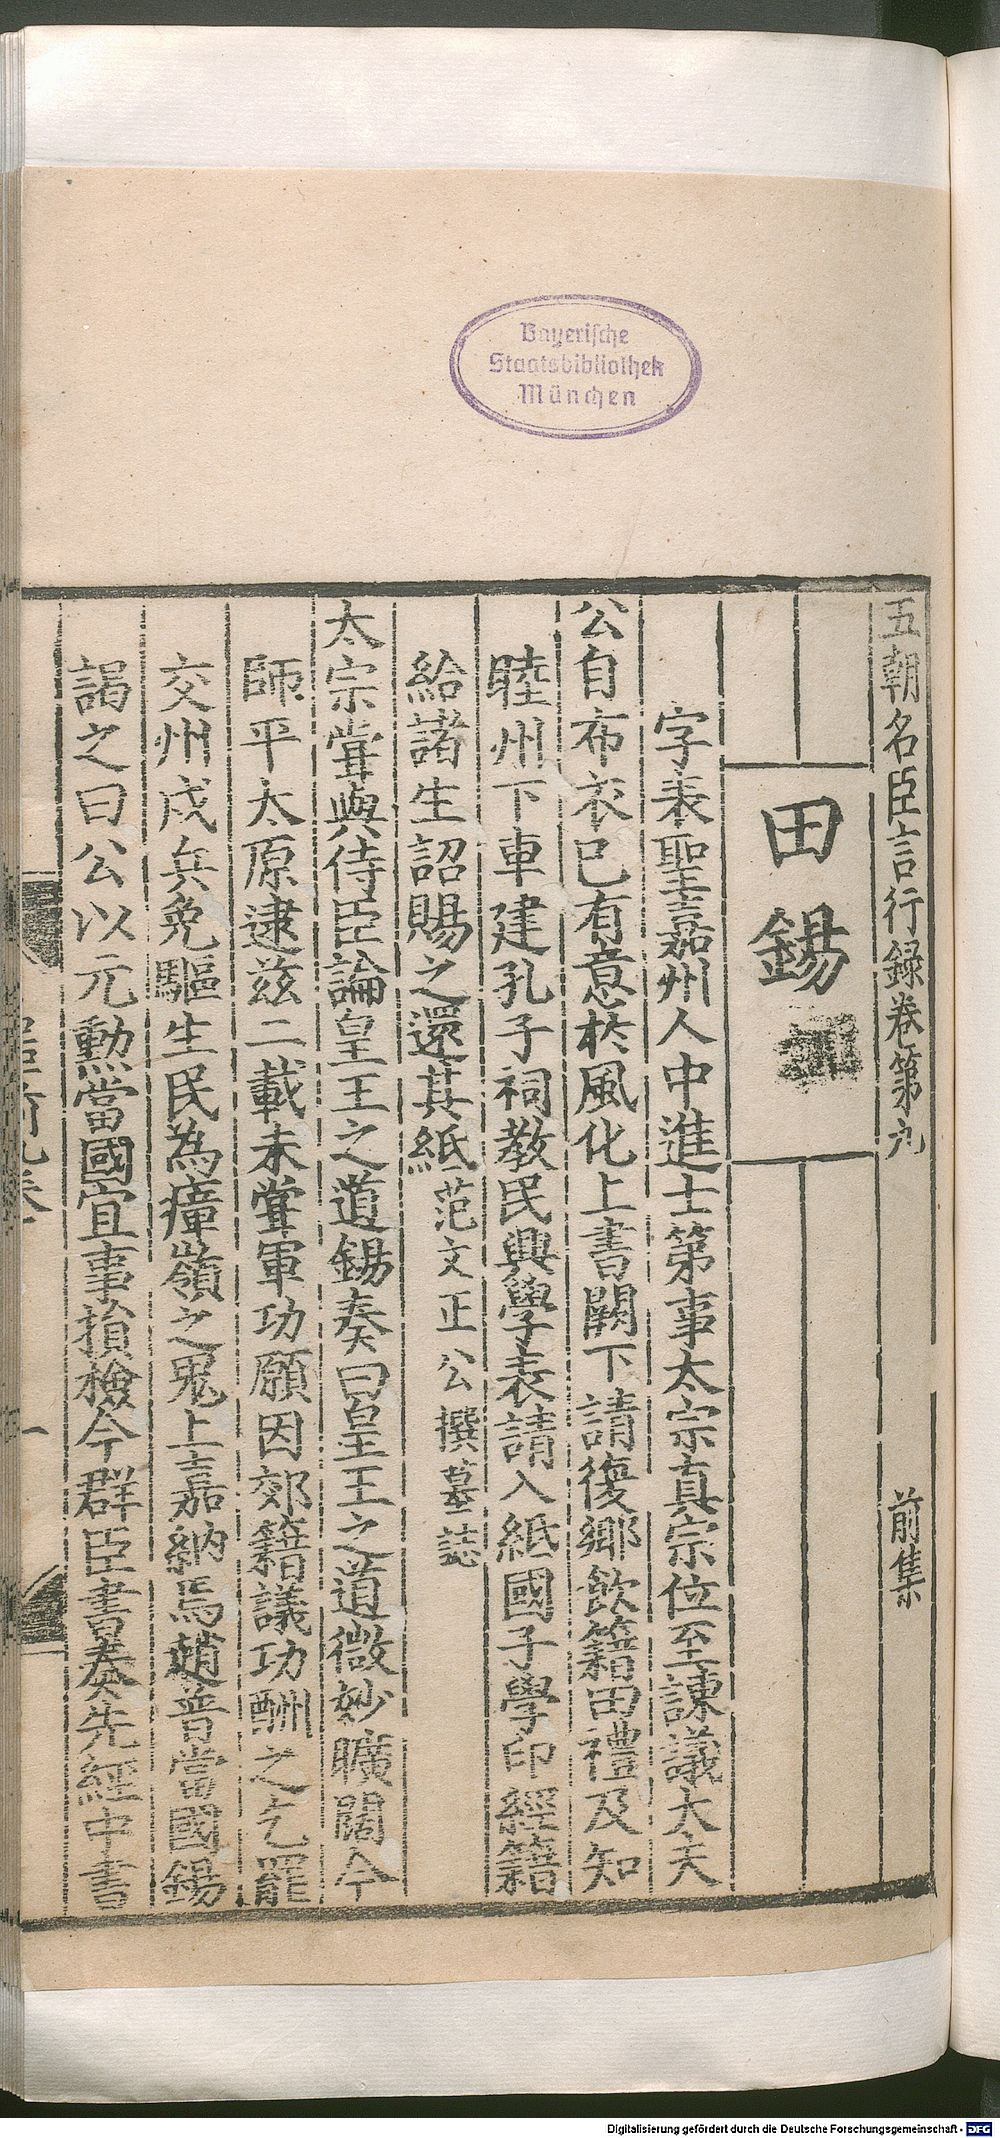 Bayerische
Staatsbibliothek
München
五朝名臣言行録卷第九 前集
田錫
字表聖嘉州人中進士第事太宗真宗位至諫議大夫
公自布衣已有意於風化上書闕下請復鄉飲籍田禮及知
睦州下車建孔子祠教民興學表請入紙國子學印經籍
給諸生詔賜之還其紙 范文正公撰墓誌
太宗甞與侍臣論皇王之道錫奏曰皇王之道微妙曠闊今
師平太原逮兹二載未甞軍功願因郊籍議功酬之乞罷
交州戍兵免驅生民為瘴嶺之鬼上嘉納焉趙普當國錫
謁之曰公以元勳當國宜事損檢今群臣書奏先經中書
一
Digitalisierung gefördert durch die Deutsche Forschungsgemeinschaft - DFG